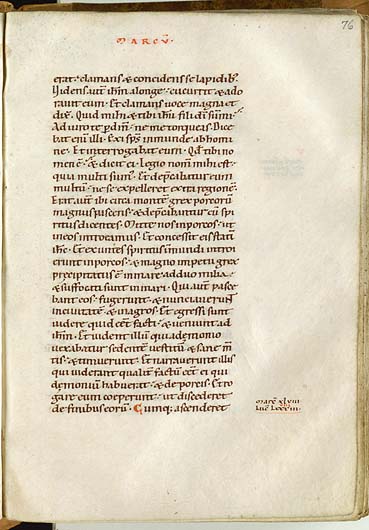 76
MARCUˉ.
erat. clamans & concidens se lapidib;
Uidens aut ihm alonge. cucurrit & ado
rauit eum. Et clamans uoce magna et
dix. Quid mihi & tibi ihu fili di sumi.
Adiuro te p dm. ne me torqueas. Dice
bat eni illi. Exi sps inmunde ab homi
ne. Et interrogabat eum. Qd tibi no
men ē. & dicit ei. Legio nom mihi est.
quia multi sum. Et depcabatur eum
multu. ne se expelleret extra regione.
Erat aut ibi circa monte grex porcoru
magnus pascens. & depcabantur eu spi
ritus dicentes. Mitte nos in porcos. ut
in eos introeamus. Et concessit eis stati
ihc. Et exeuntes spiritus inmundi intro
ierunt in porcos. & magno impetu grex
precipitatus ē in mare. ad duo milia.
& suffocati sunt in mari. Qui aut pasce
bant eos. fugerunt. & nunciauerunt
in ciuitate & in agros. Et egressi sunt
uidere quid eet facti. & ueniunt ad
ihm. Et uident illu qui a demonio
uexabatur sedente uestitu & sane m
tis. & timuerunt. Et narrauerunt illis
qui uiderant qualit factu eet ei qui
demoniu habuerat. & de porcis. Et ro
gare eum coeperunt. ut discederet
de finibus eoru. Cumq; ascenderet
Marc xlviii
luc lxxxiii